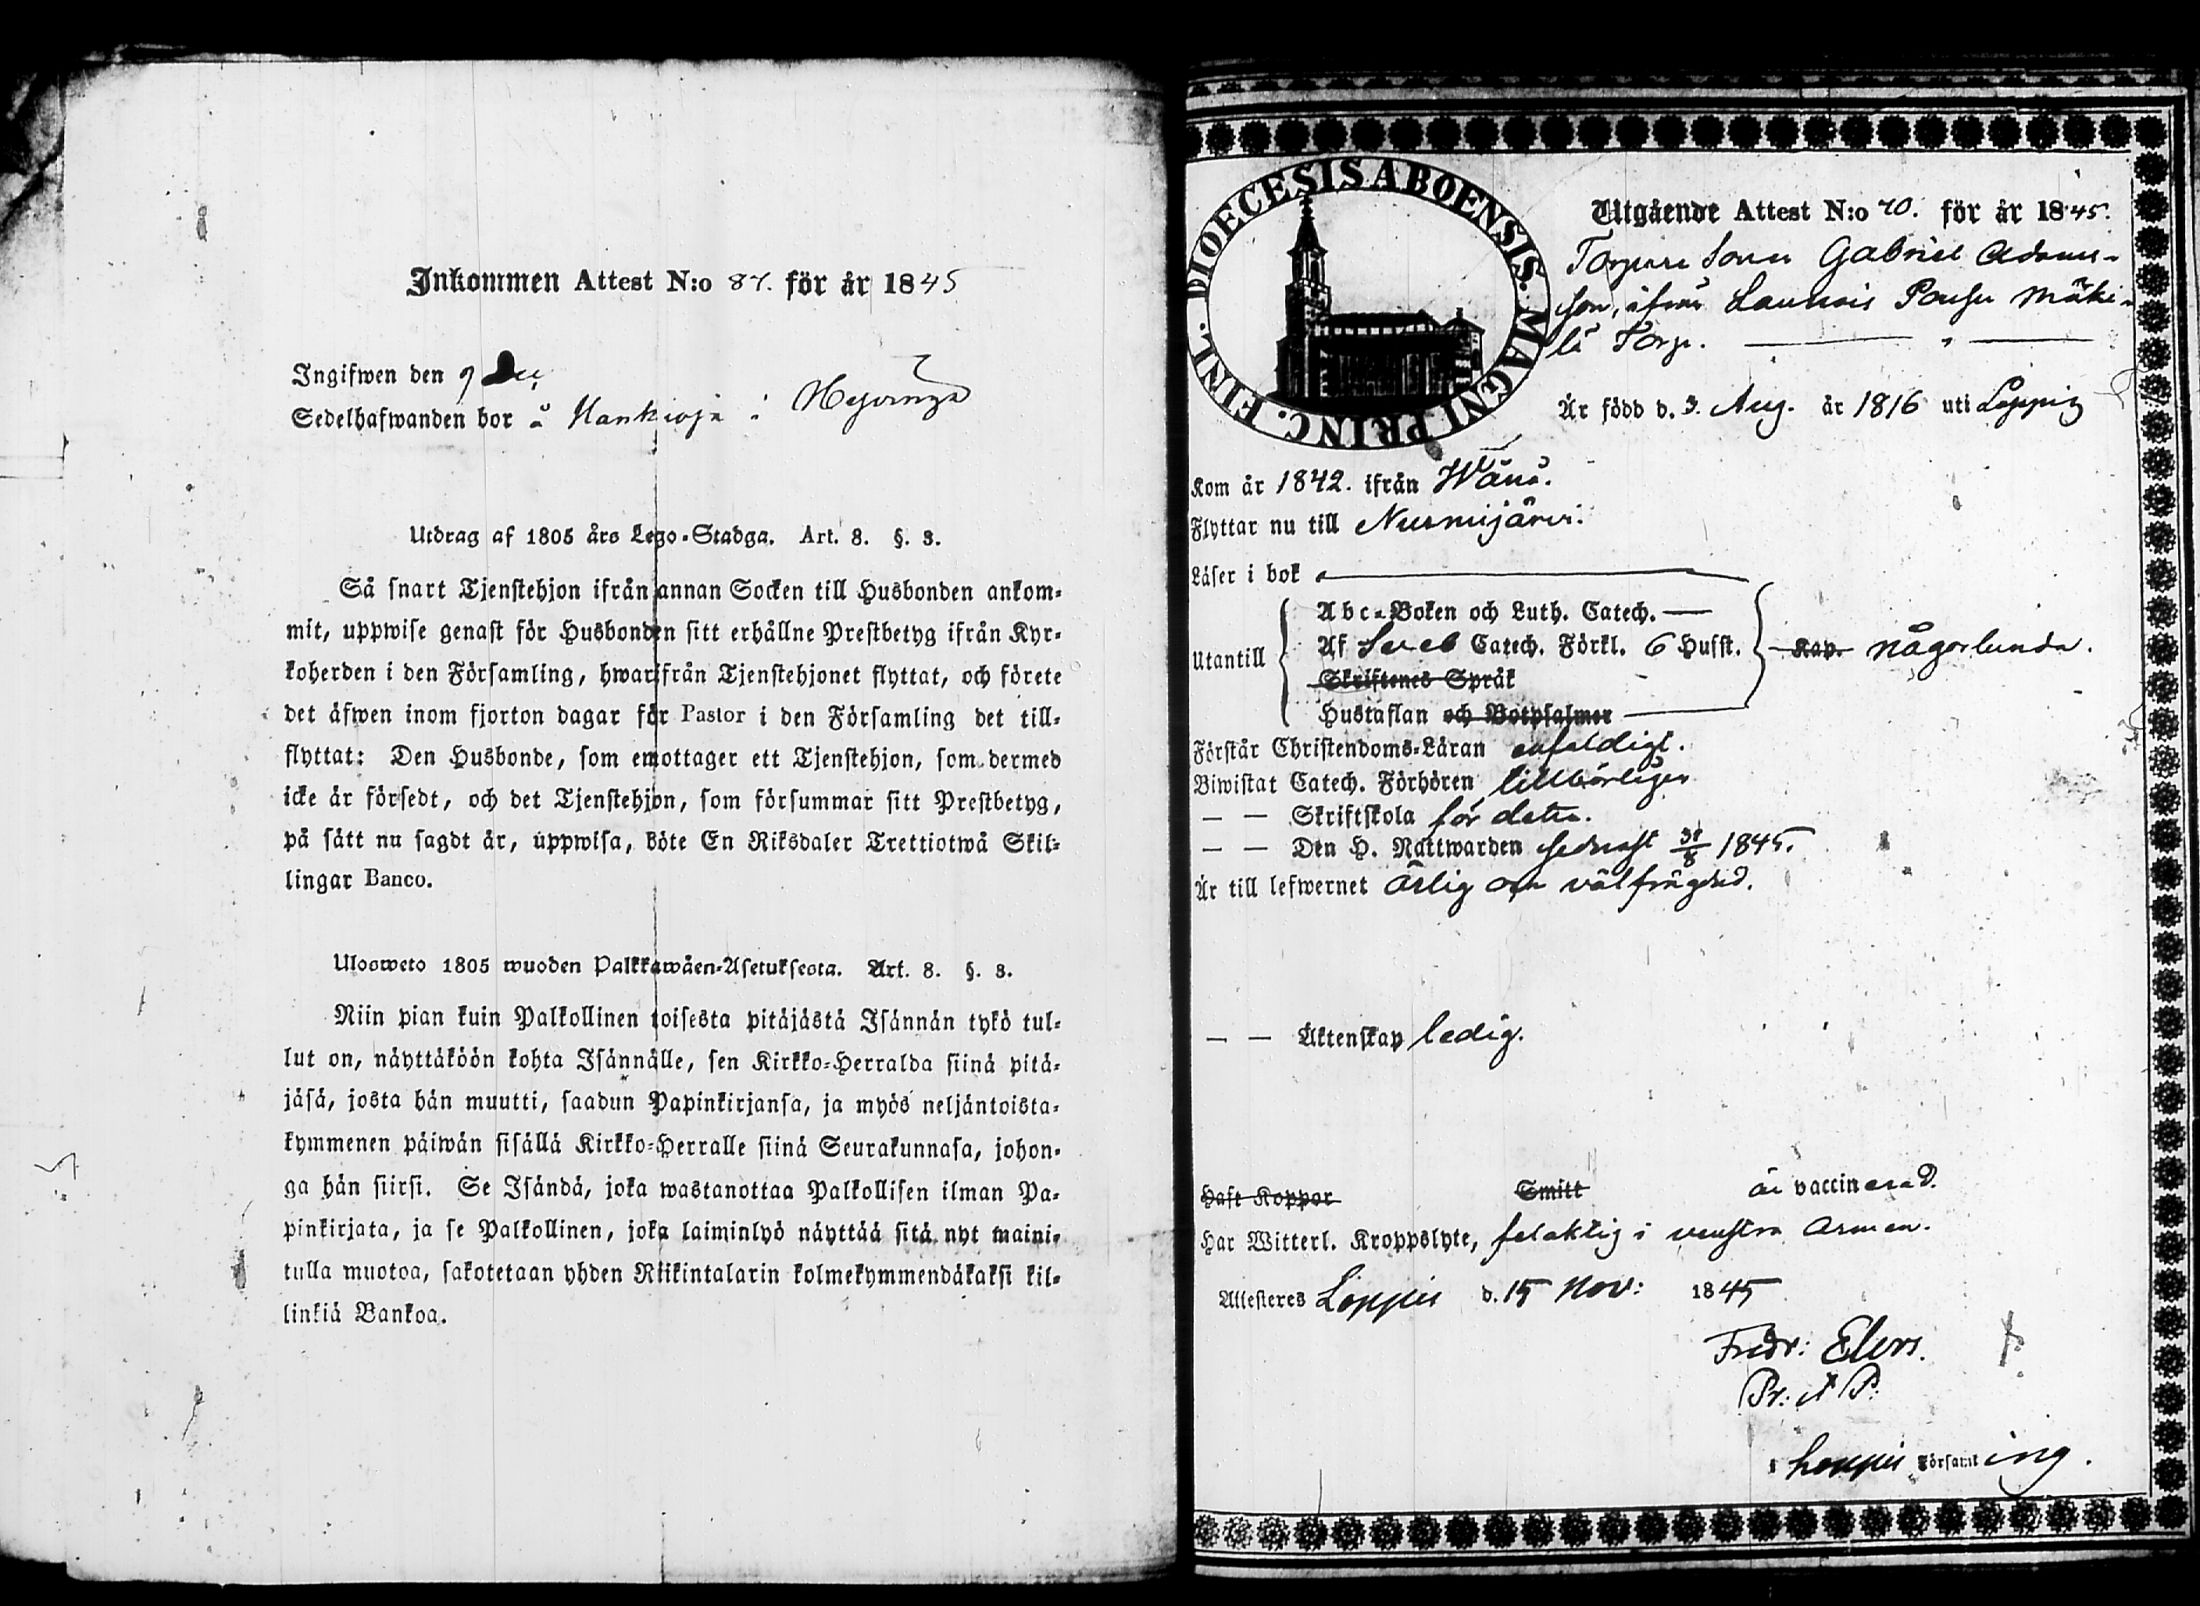 Inkommen Attest N:o 87. för år 1845
Ingifwen den 9
Sedelhafwanden bor å Hankioja i Hyvinge
Utdrag af 1805 års Lego-Stadga. Art. 8. §. 3.
Så snart Tjenstehjon ifrån annan Socken till Husbonden ankom-
mit, uppwise genast för Husbonden sitt erhållne Prestbetyg ifrån Kyr-
koherden i den Församling, hwarifrån Tjenstehjonet flyttat, och förete
det äfwen inom fjorton dagar för Pastor i den Församling det till-
flyttat: Den Husbonde, som emottager ett Tjenstehjon, som dermed
icke är försedt, och det Tjenstehjon, som försummar sitt Prestbetyg,
på sätt nu sagdt är, uppwisa, böte En Riksdaler Trettiotwå Skil-
lingar Banco.
Ulosweto 1805 wuoden Palkkawäen-Asetuksesta. Art. 8. §. 3.
Niin pian kuin Palkollinen toisesta pitäjästä Isännän tykö tul-
lut on, näyttäköön kohta Isännälle, sen Kirkko-Herralda siinä pitä-
jäsä, josta hän muutti, saadun Papinkirjansa, ja myös neljäntoista-
kymmenen päiwän sisällä Kirkko-Herralle siinä Seurakunnasa, johon-
ga hän siirsi. Se Isändä, joka wastanottaa Palkollisen ilman Pa-
pinkirjata, ja se Palkollinen, joka laiminlyö näyttää sitä nyt maini-
tulla muotoa, sakotetaan yhden Riikintalarin kolmekymmendäkaksi kil-
linkiä Bankoa.
DIOECESIS ABOENSIS. MAGNI PRINC. FINL.
Utgående Attest N:o 70. för år 1845.
Torpare Sonen Gabriel Adams-
son, ifrån Launois Mäki-
lä Torp.
Är född d. 3. Aug. år 1816 uti Loppis
Kom år 1842. ifrån Wånå.
Flyttar nu till Nurmijärvi.
Läser i bok
Utantill
Abc-Boken och Luth. Catech.
Af Sveb Catech. Förkl. 6 Hufst. Kap. någorlunda.
Skriftenes Språk
Hustaflan och Botpsalmer
Förstår Christendoms-Läran enfaldigt.
Biwistat Catech. Förhören tillbörligen
— — Skriftskola för detta.
— — Den H. Nattwarden sednast 31/8 1845.
Är till lefwernet ärlig och välfrägdad.
— — Äktenskap ledig.
Haft Koppor Smitt är vaccinerad.
Har Witterl. Kroppslyte, felaktig i venstra armen.
Attesteres Loppis d. 15 Nov: 1845
Fredr: Elers.
Pr: A P:
i Loppis Församling.